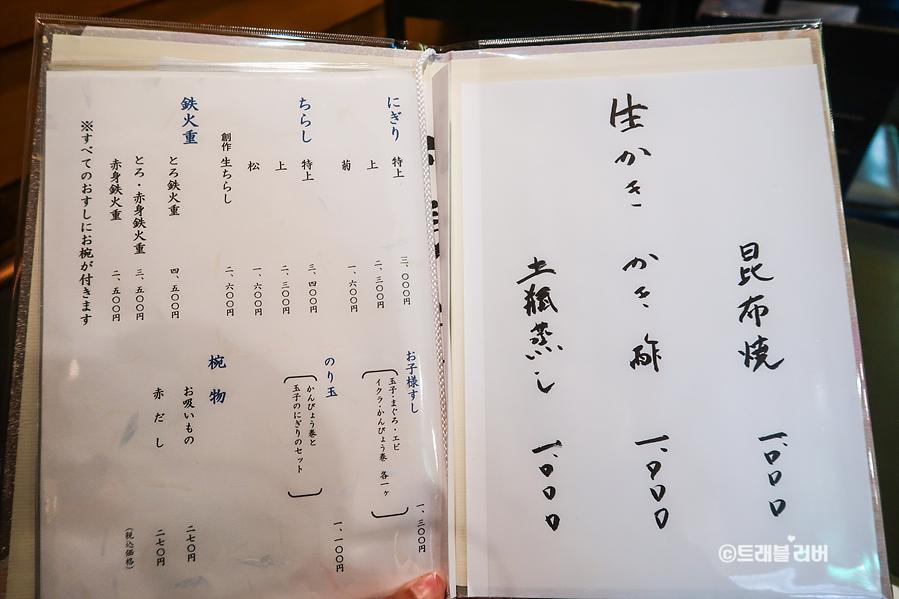 昆布焼 一、〇〇〇
生かき かき酢 一、〇〇〇
土瓶蒸し 一、〇〇〇
にぎり
特上 三、〇〇〇円
上 二、三〇〇円
菊 一、六〇〇円
ちらし
特上 三、四〇〇円
上 二、三〇〇円
松 一、六〇〇円
創作 生ちらし 二、六〇〇円
鉄火重
とろ鉄火重 四、五〇〇円
とろ・赤身鉄火重 三、五〇〇円
赤身鉄火重 二、五〇〇円
※すべてのおすしにお椀が付きます
お子様すし 一、三〇〇円
玉子・まぐろ・エビ
イクラ・かんぴょう巻 各一ヶ
のり玉 一、一〇〇円
かんぴょう巻と
玉子のにぎりのセット
椀物
お吸いもの 二七〇円
赤だし 二七〇円
(税込価格)
©트래블러버